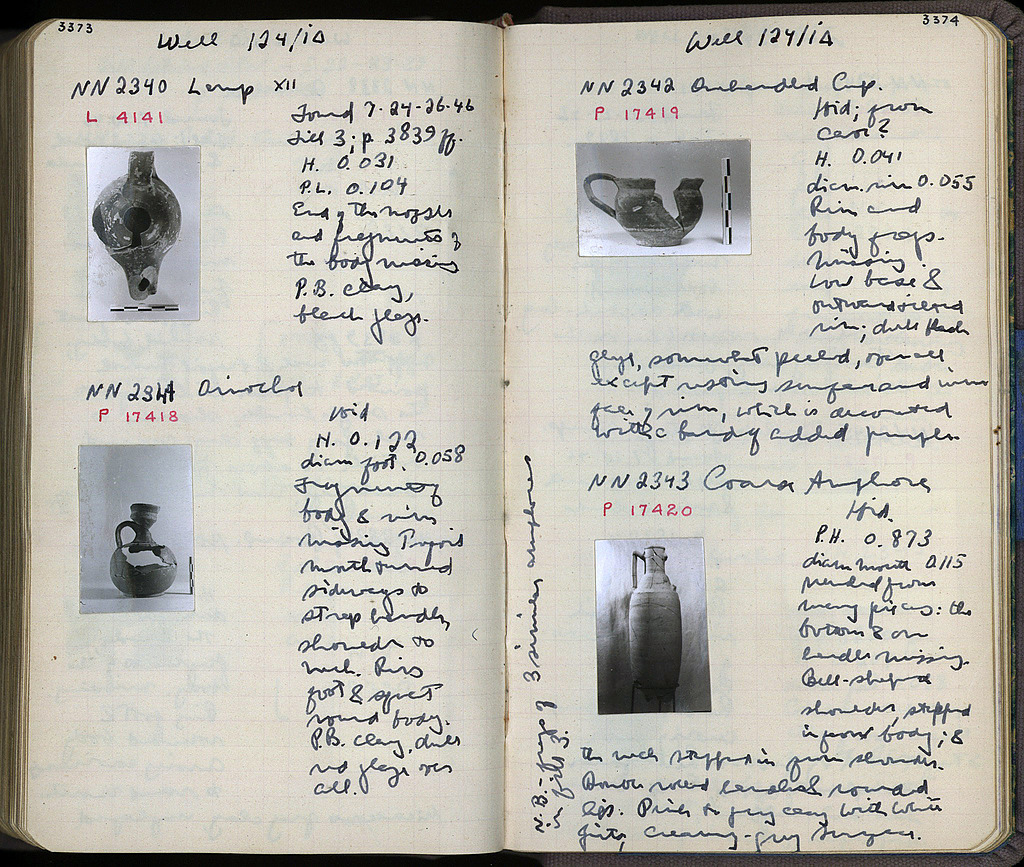 3373
Well 124/1Δ
NN 2340 Lamp XII
L 4141
Found 7-24-26-46
Fill 3; p 3839 ff.
H. 0.031
P.L. 0.104
End of the nozzle
and fragments of
the body missing
P.B. clay,
black glaze.
NN 2341 Oinochoe
P 17418
Ibid
H. 0.122
diam foot. 0.058
Fragments of
body & rim
missing Trefoil
mouth turned
sideways to
strap handle,
shoulder to
neck. Ring
foot & squat
round body.
P.B. clay, dull
red glaze over
all.
3374
Well 124/1Δ
NN 2342 Onehandled Cup.
P 17419
Ibid; from
cave?
H. 0.041
diam. rim 0.055
Rim and
body frags.
missing.
Low base &
rim; dull black
glaze, somewhat peeled, over all
except resting surface and inner
face of rim, which is decorated
with a band of added purple.
NN 2343 Coarse Amphora
P 17420
Ibid.
P.H. 0.873
diam mouth 0.115
Mended from
many pieces: the
bottom & one
handle missing.
Bell-shaped
shoulder, stepped
in from body; &
the neck stepped in from shoulder.
Double rolled handles & rounded
lip. Pink to grey clay with white
grits, creamy-grey surface.
N.B. - frags of 3 similar amphoras
in fill 3.